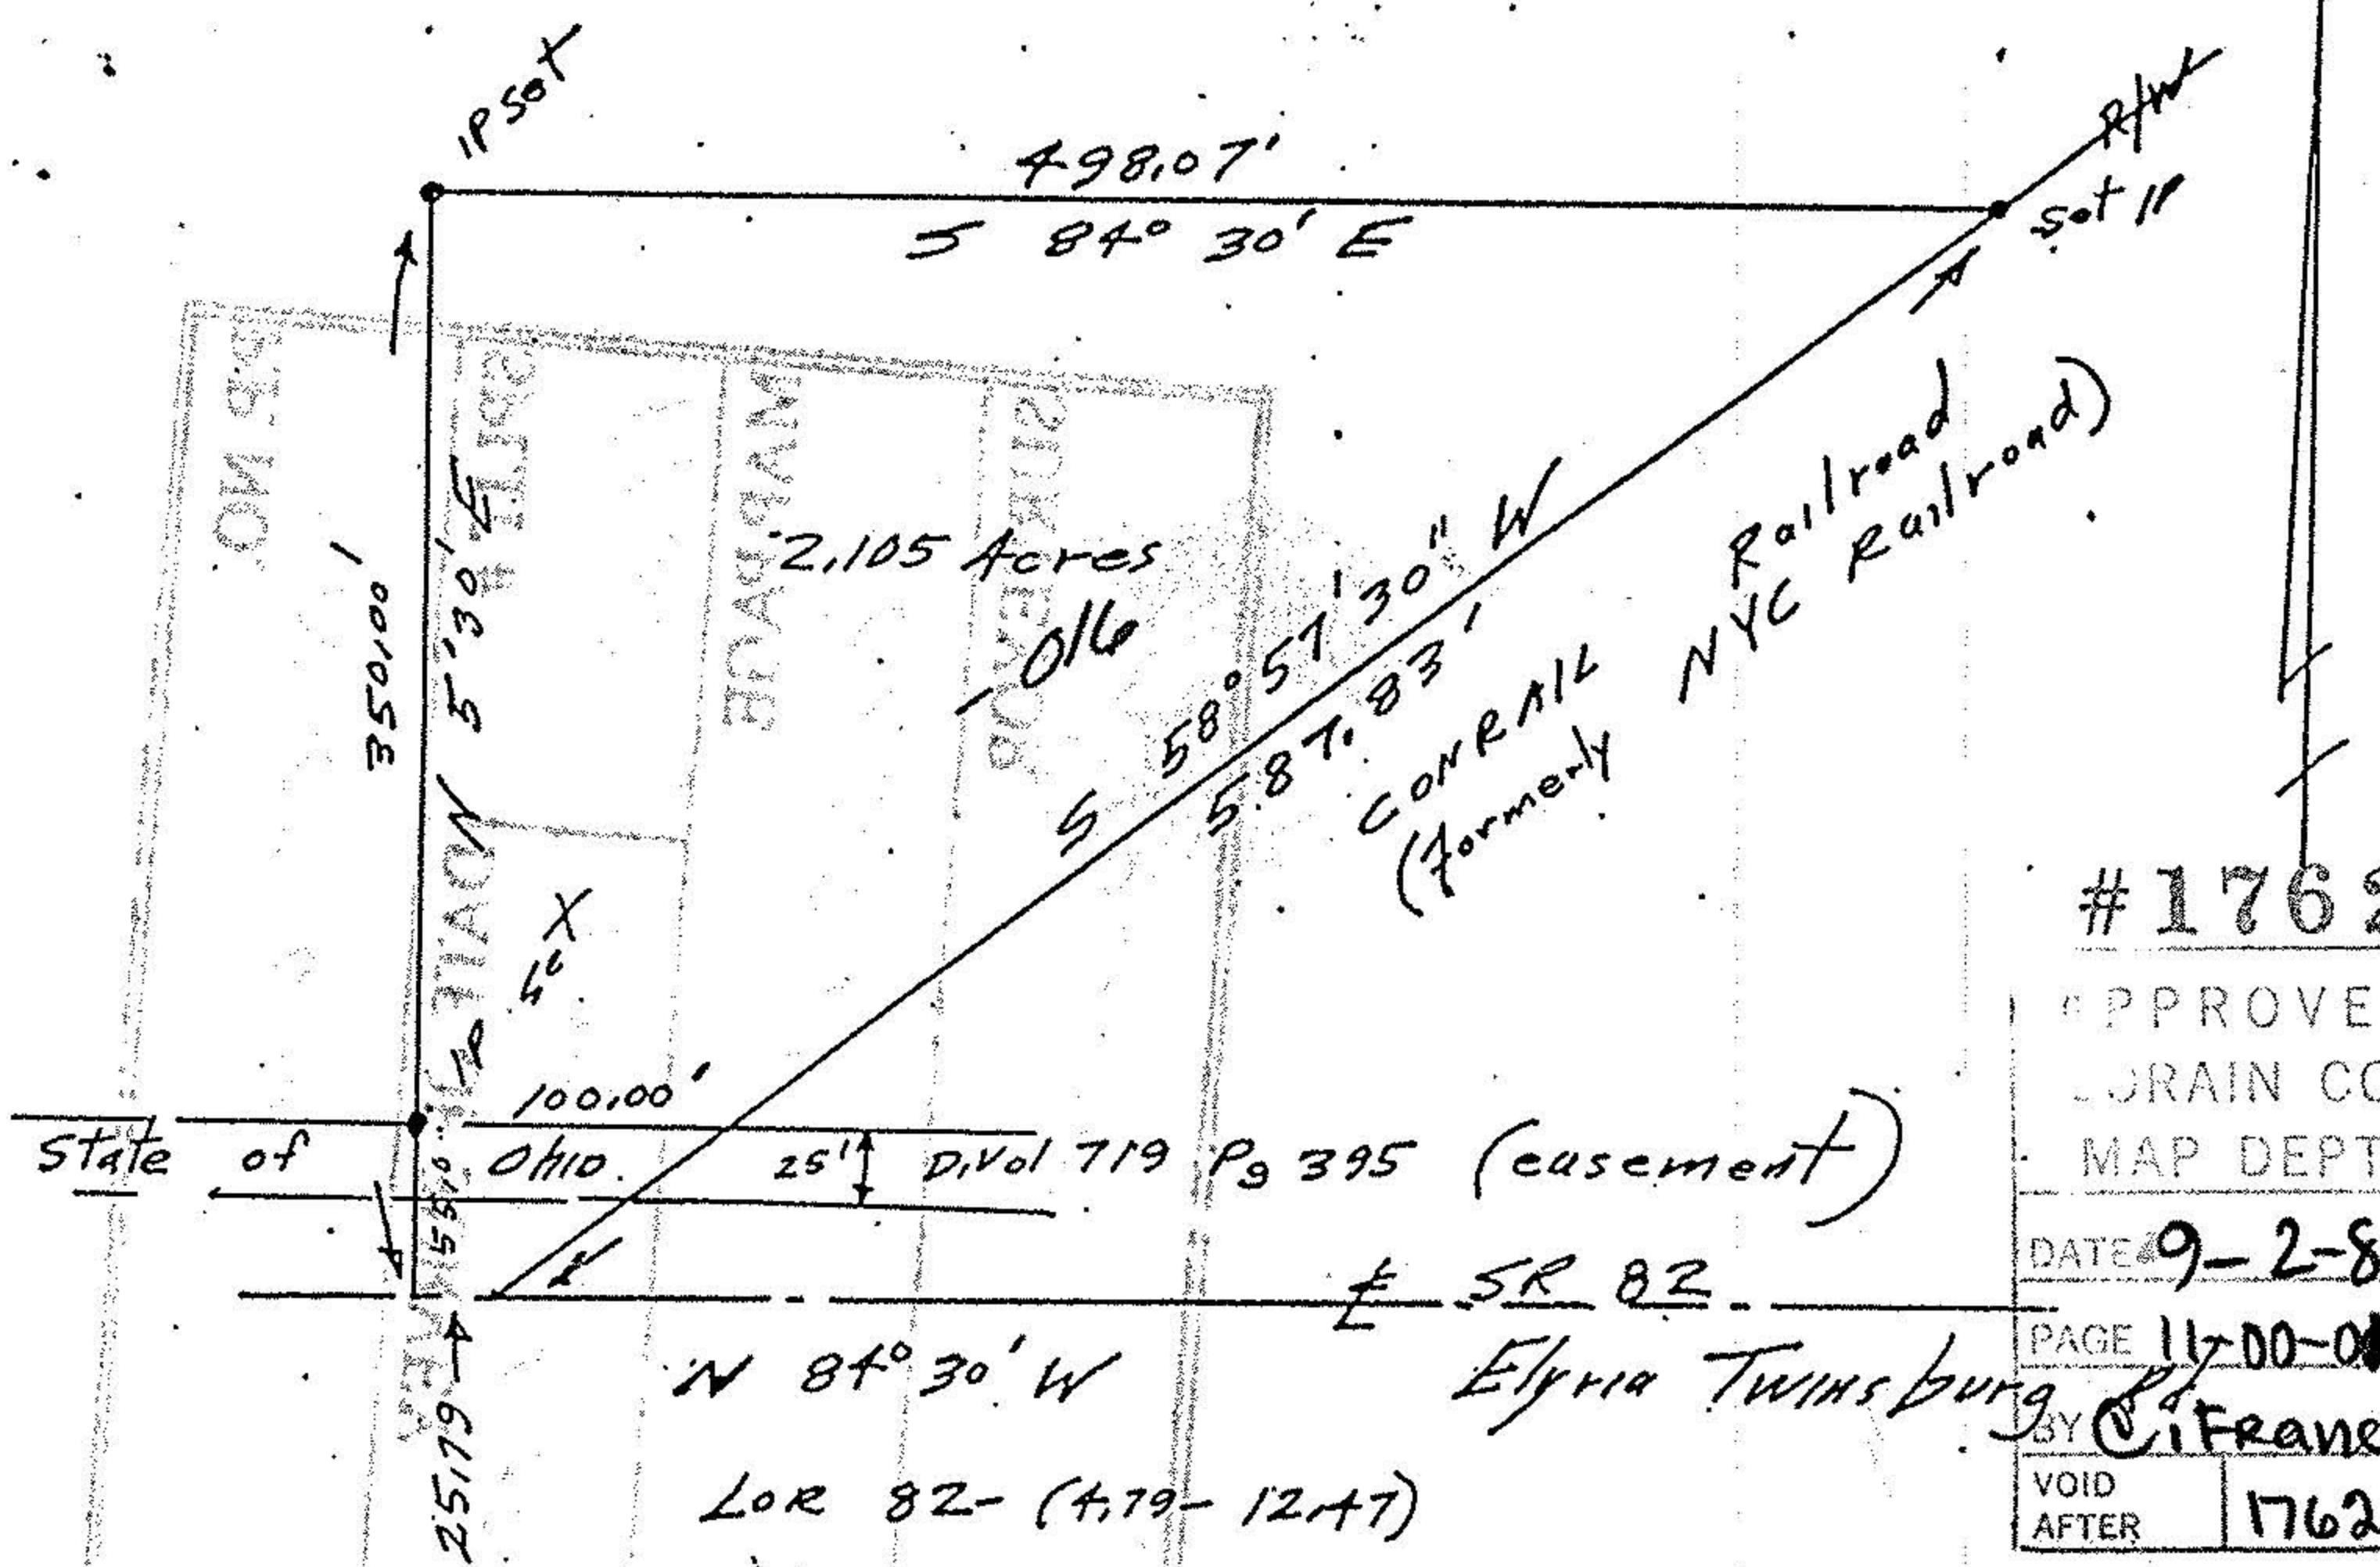 IP set
R/W
498.07'
S 84° 30' E
set IP
350.00'
N 5° 30' E
2.105 Acres
-016
S 58° 57' 30" W
587.83'
CONRAIL Railroad
(formerly NYC Railroad)
IP
100.00'
State of Ohio
25'
D.Vol 719 Pg 395 (easement)
55.0
25+79
℄ SR 82
N 84° 30' W
Elyria Twinsburg Rd
LOR 82-(4.79-12.47)
P.P. NO.
SPLIT #
MAP PAGE
SURVEYOR
#1762
APPROVE
LORAIN CO
MAP DEPT
DATE 9-2-8
PAGE 11-00-0
BY
VOID AFTER 1762